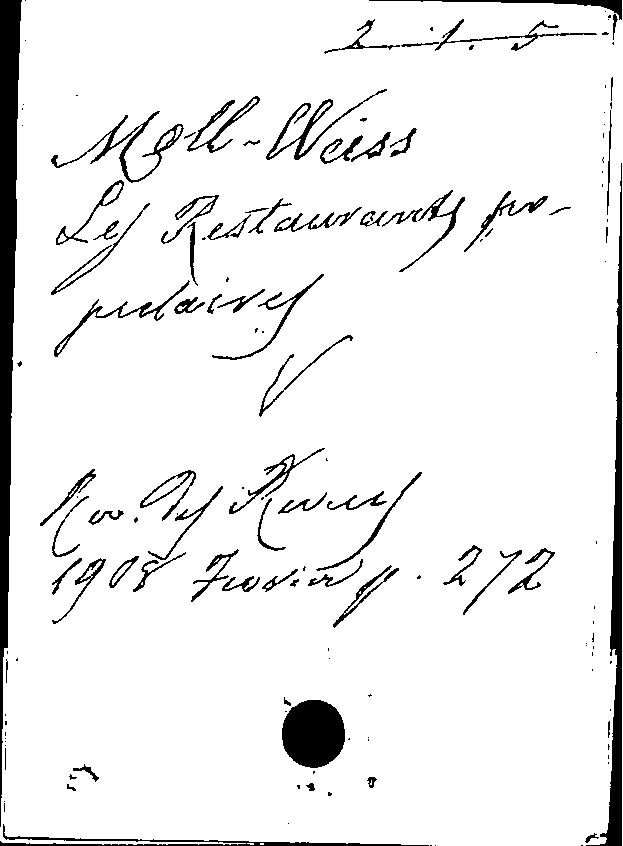 2. 1. 5
Moll-Weiss
Les Restaurants po-
pulaires
V
Rev. des Revues
1908 Fevrier p. 272